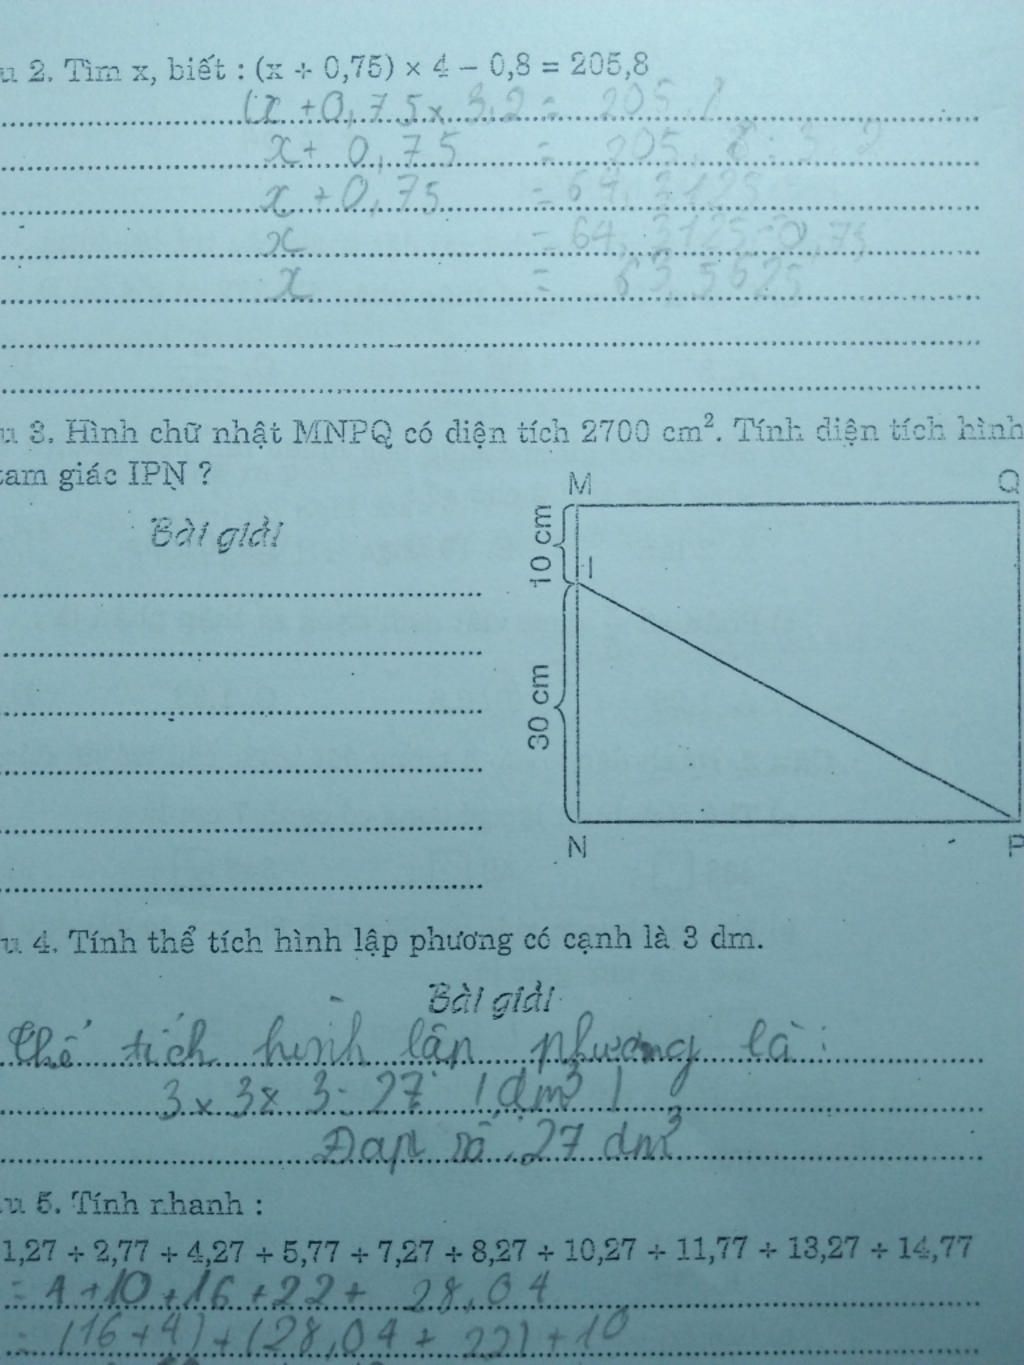 u 2. Tìm x, biết : (x + 0,75) × 4 – 0,8 = 205,8
(x + 0,75 × 3,2 = 205,
x + 0,75 = 205,8 : 3,2
x + 0,75 = 64,3125
x = 64,3125 - 0,75
x = 63,5625
u 3. Hình chữ nhật MNPQ có diện tích 2700 cm². Tính diện tích hình
tam giác IPN ?
M Q
Bài giải
10 cm
I
30 cm
N P
u 4. Tính thể tích hình lập phương có cạnh là 3 dm.
Bài giải
Thể tích hình lập phương là :
3 x 3 x 3 = 27 (dm³)
Đáp số : 27 dm³
u 5. Tính nhanh :
1,27 + 2,77 + 4,27 + 5,77 + 7,27 + 8,27 + 10,27 + 11,77 + 13,27 + 14,77
= 4 + 10 + 16 + 22 + 28,04
= (16 + 4) + (28,04 + 22) + 10